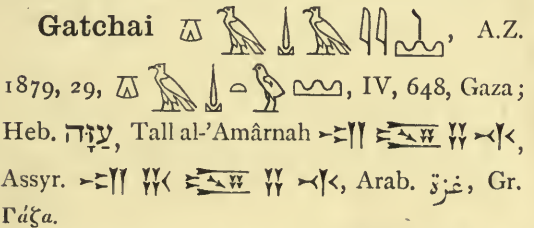 Gatchai 𓎼𓄿𓍑𓄿𓇌, A.Z.
1879, 29, 𓎼𓄿𓍑𓏏𓅱𓈉, IV, 648, Gaza;
Heb. עַזָּה, Tall al-’Amârnah ,
Assyr. , Arab. غزة, Gr.
Γάζα.